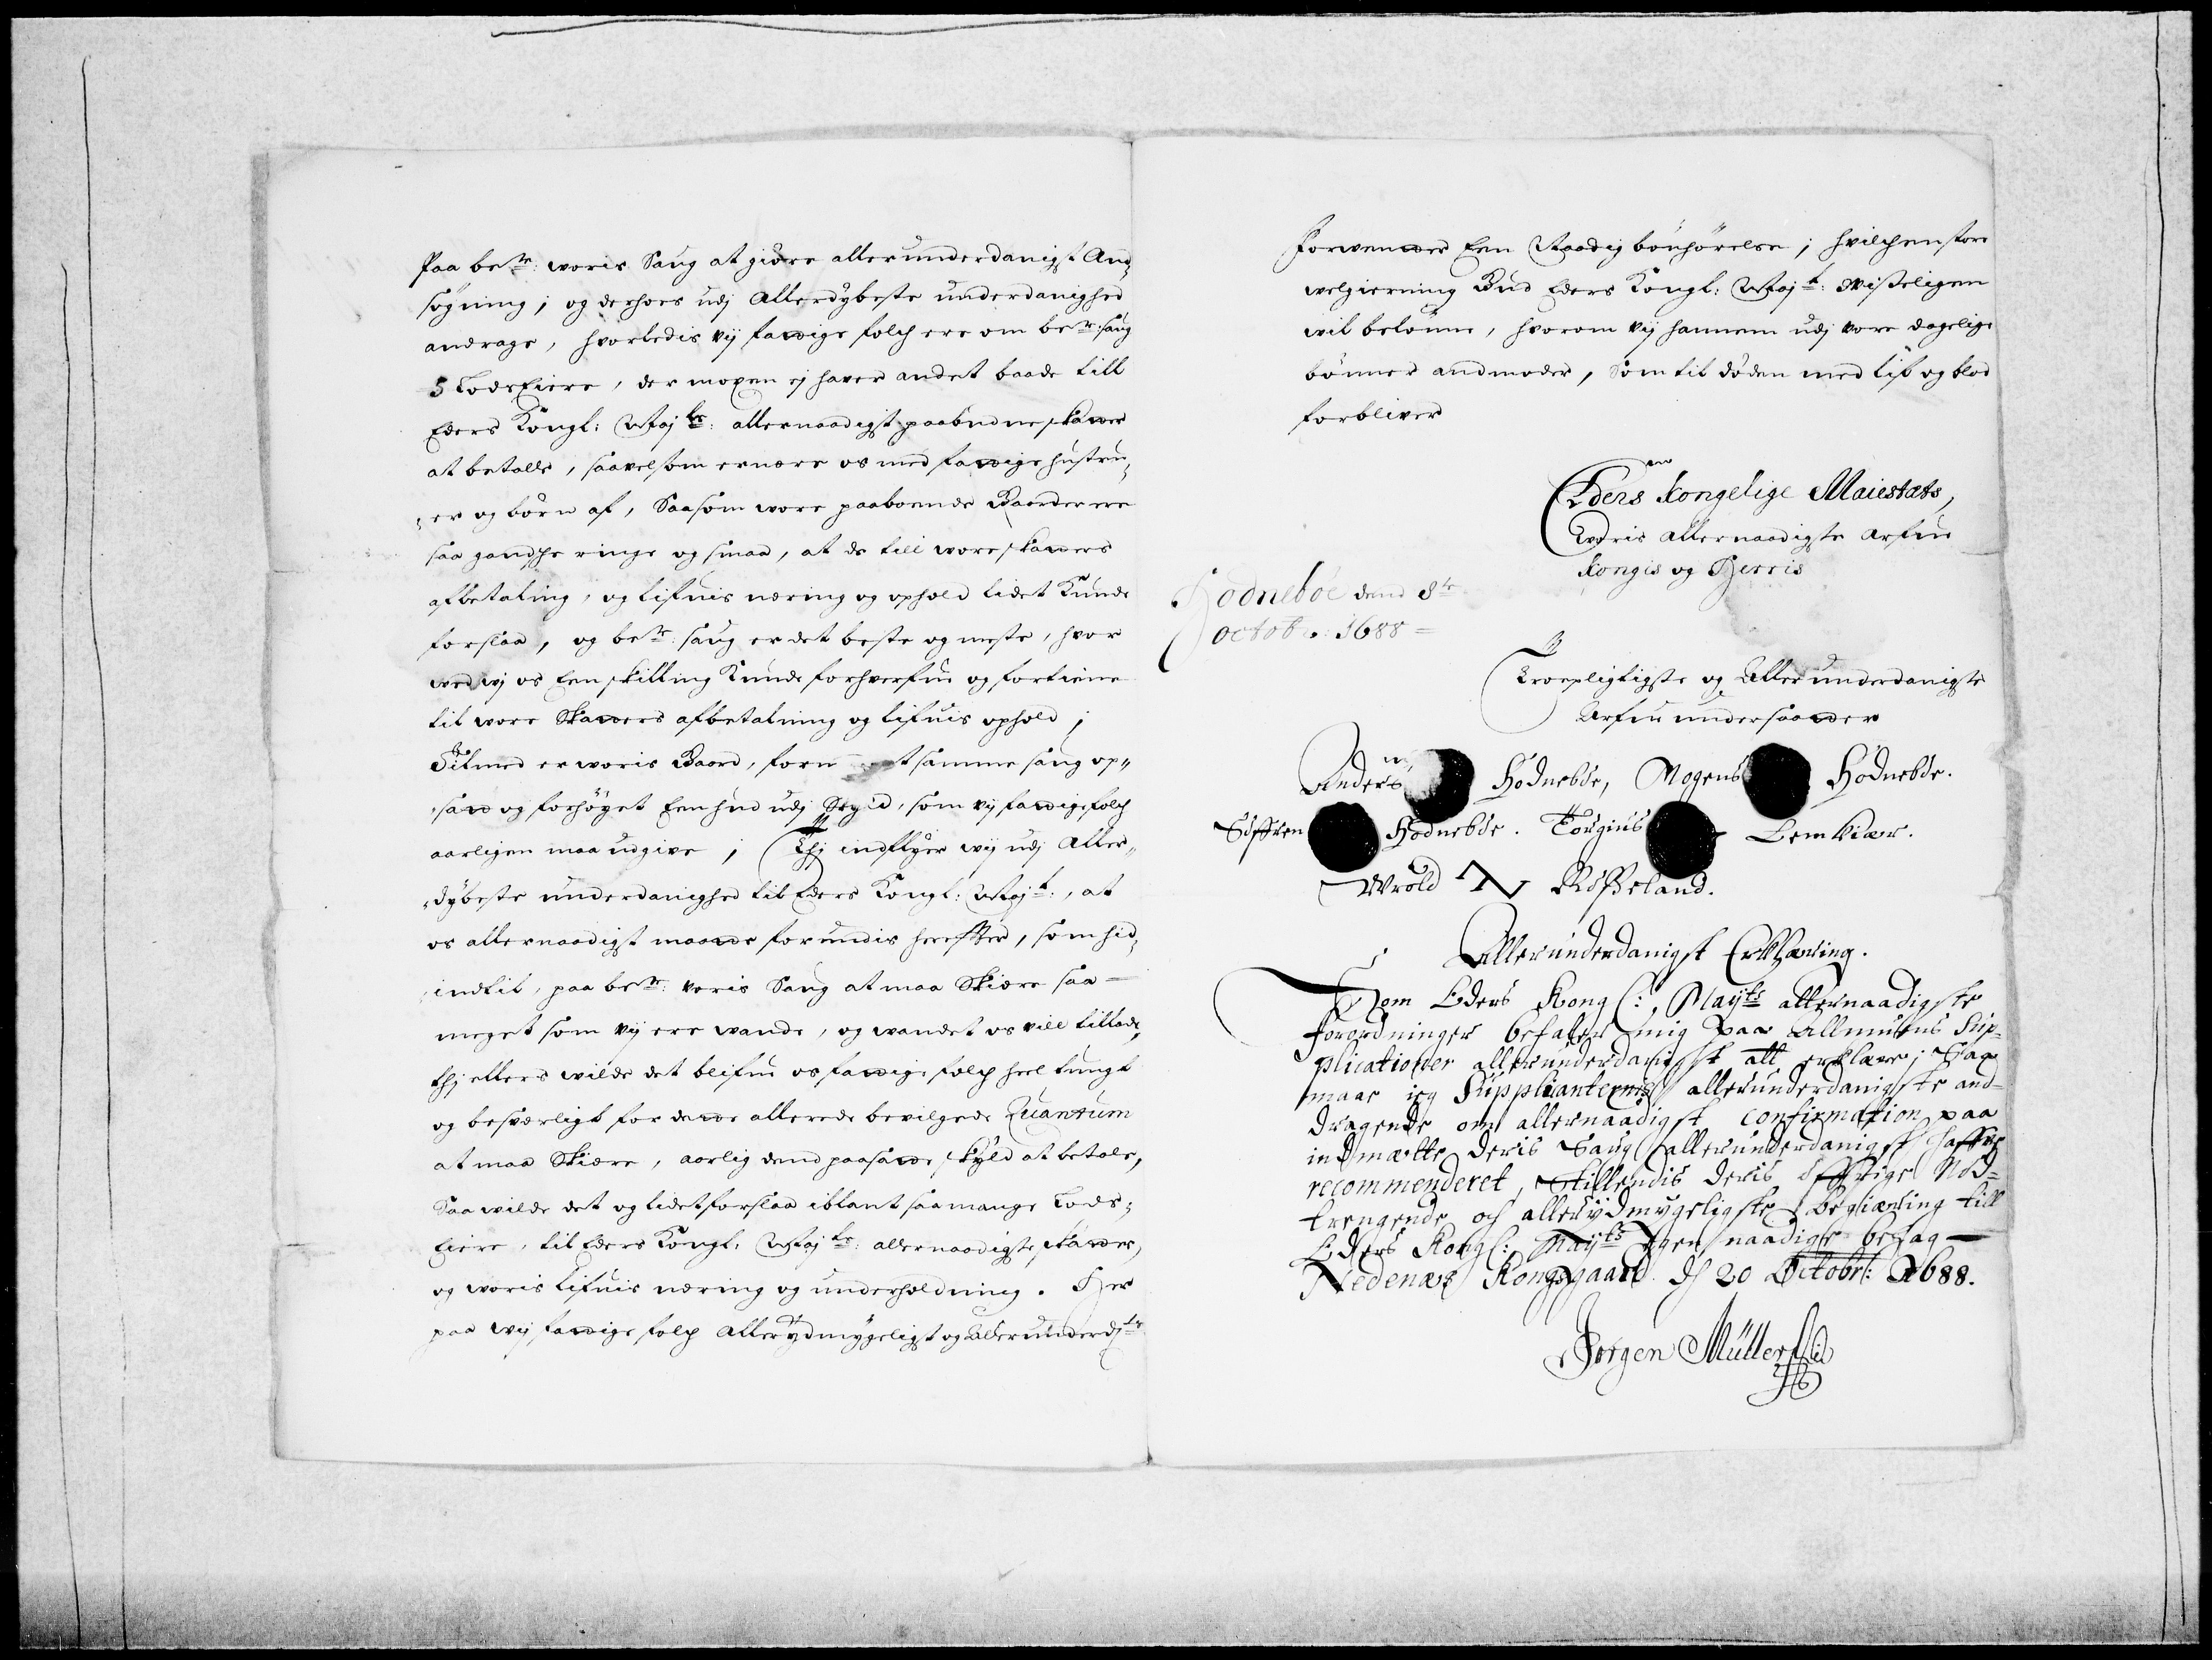 Paa bete: woris Saug at giøre allerunderdanigst An-
søgning; og derhoes udj Allerdybeste underdanighed
andrage, hvorledis vij fattige folch ere om bete: saug
5 LodsEiere, der moxen ej haver andet baade till
Eders Kongl: Majts: allernaadigst paabudne skatter
at betalle, saavelsom ernære os med fattige hustru-
er og børn af, Saasom wore paaboende Gaarder ere
saa gandsche ringe og smaa, at de till wore skatters
afbetaling, og lifuis næring og ophold lidet Kunde
forslaa, og bete: saug er det beste og meste, hvor
ved wj os Een skilling Kunde forhverfue og fortiene
til wore Skatters afbetalning og lifuis ophold;
Tilmed er woris Gaard, samme saug op-
satt og forhøyet Een hud udj Skyld, som vij fattige folch
aarligen maa udgive; Thj indflyer wij udj Aller-
dybeste underdanighed til Eders Kongl: Majt:, at
os allernaadigst maatte forundis herefter, som hid-
indtil, paa bete: woris Saug at maa Skiære saa
meget som vij ere wandt, og wandet os vill tillade,
thj ellers wilde det blifue os fattige folch heel tungt
og besværligt for dette allerede bevilgede Quantum
at maa Skiære, aarlig dend paasatte skyld at betale,
Saa wilde det og lidet forslaa iblant saa mange Lods-
Eiere, til Eders Kongl: Majts: allernaadigste skatter,
og woris lifuis næring og underholdning. Her
paa wij fattige folch Allerydmygeligst og allerunderdste
Forwenter Een Naadig bønhørelse; hvilchen store
welgierning Gud Eders Kongl: Majt: visseligen
wil belønne, hvorom vij hannem udj vore dagelige
bønner anmoder, Som til døden med lif og blod
forbliver
Eders kongelige Maiestæts,
Vdris allernaadigste Arfue
Kongis og Herris
Hødnebøe dend 8te
octob: 1688
Troepligtigste og Allerunderdanigste
Arfue undersaatter
Anders Hødnebøe, Mogens Hødnebøe.
Søffren Hødnebøe. Tougius Lemkiær.
Wrold Røsseland.
Allerunderdanigst Erklæring.
Som Eders Kongl: Mayts allernaadigste
Forordninger befaler mig paa Allmuens Sup-
plicationer allerunderdanigst att erklære; Saa
maae ieg Supplicanternes allerunderdanigste and-
dragende om allernaadigst confirmation paa
indmælte deris Saug allerunderdanigst haffve
recommenderet, stillendis deris øffrige Nød-
trengende och allerydmygeligste begiæring till
Eders Kongl: Mayts Egen naadige behag
Nedenæs Kongsgaard. d 20 Octobr: 1688.
Jørgen Müller